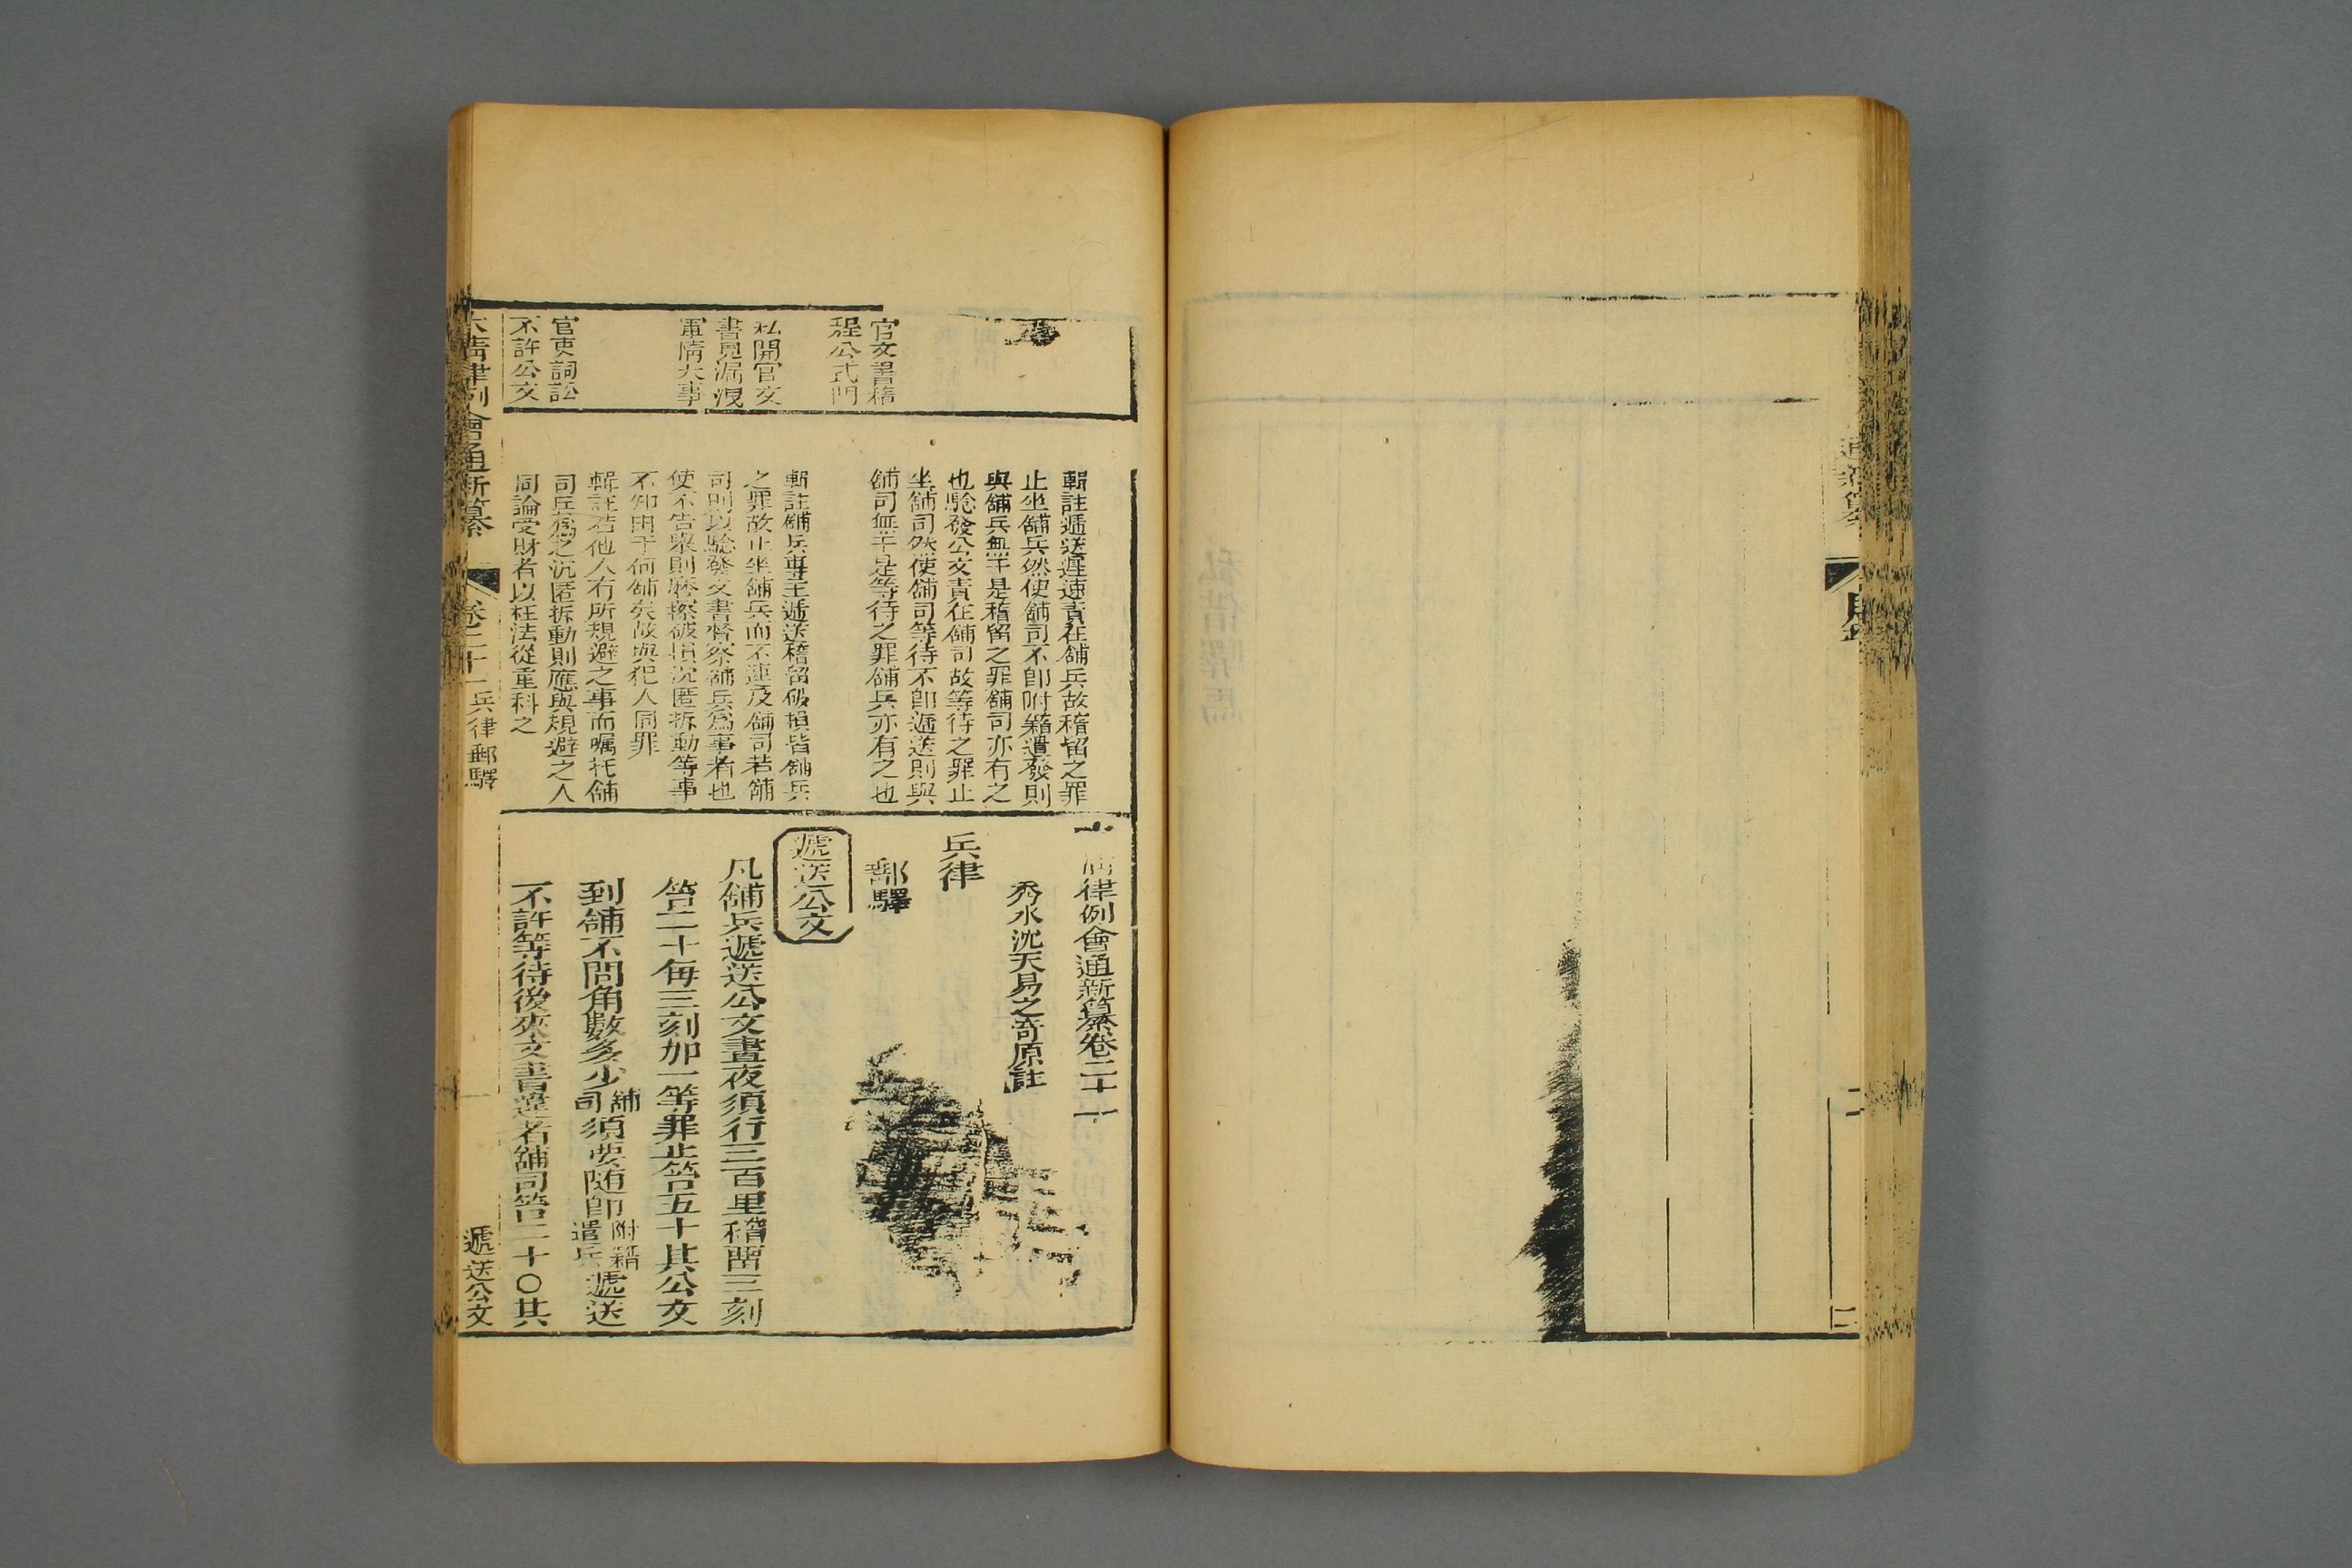 通新纂
目錄
官文書稽
程公式門
私開官文
書見漏洩
軍情大事
官吏詞訟
不許公文
輯註遞送遲速責在舖兵故稽留之罪
止坐舖兵然使舖司不即附籍遣發則
與舖兵無干是稽留之罪舖司亦有之
也驗發公文責在舖司故等待之罪止
坐舖司然使舖司等待不即遞送則與
舖司無干是等待之罪舖兵亦有之也
輯註舖兵專主遞送稽留破損皆舖兵
之罪故止坐舖兵而不連及舖司若舖
司則以驗發文書督察舖兵為事者也
使不告舉則磨擦破損沉匿拆動等事
不知由于何舖矣故與犯人同罪
輯註若他人有所規避之事而囑托舖
司兵為之沉匿拆動則應與規避之人
同論受財者以枉法從重科之
律例會通新纂卷二十一
秀水沈天易之奇原註
兵律
郵驛
遞送公文
凡舖兵遞送公文晝夜須行三百里稽留三刻
笞二十每三刻加一等罪止笞五十其公文
到舖不問角數多少舖司須要隨即附籍遣兵遞送
不許等待後來文書違者舖司笞二十○其
大清律例會通新纂 卷二十一 兵律郵驛 一 遞送公文